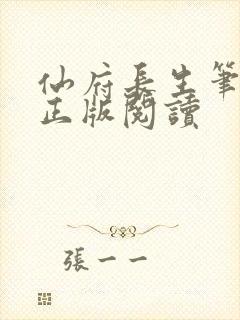 仙府長生筆
正版閱讀
張一一